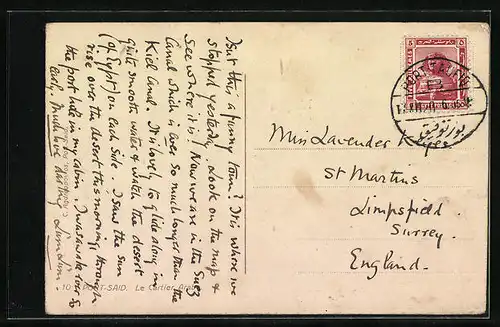 Isn't this a funny town? It is where we
stopped yesterday. Look on the map &
see where it is! Now we are in the Suez
Canal which is ever so much longer than the
Kiel Canal. It is lovely to glide along in
quite smooth water & watch the desert
(of Egypt) on each side. I saw the sun
rise over the desert this morning, through
the port hole in my cabin.
Much love
10 PORT-SAID. Le Cartier Arab
5 5
PORT TAUFIQ
بور توفيق
Miss Lavender Keyes
St Martins
Limpsfield
Surrey.
England.